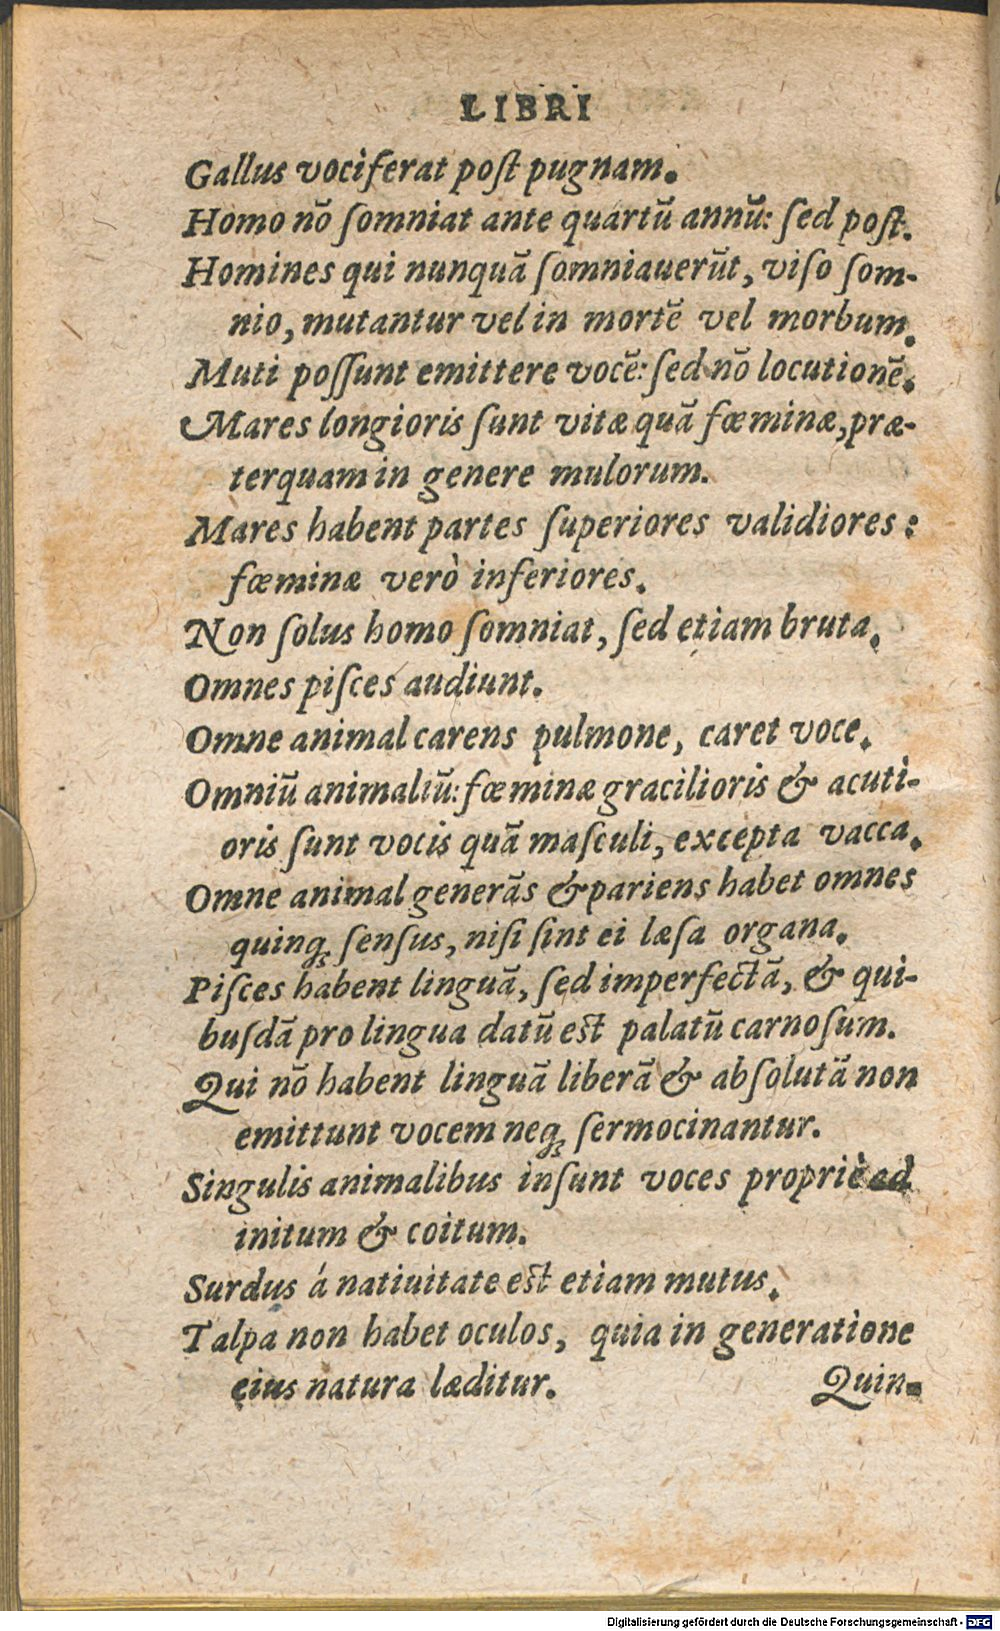 LIBRI
Gallus vociferat poſt pugnam.
Homo nō ſomniat ante quartū annū: ſed poſt.
Homines qui nunquā ſomniauerūt, viſo ſom-
nio, mutantur vel in mortē vel morbum.
Muti poſſunt emittere vocē: ſed nō locutionē.
Mares longioris ſunt vitæ quā fœminæ, præ-
terquam in genere mulorum.
Mares habent partes ſuperiores validiores:
fœminæ verò inferiores.
Non ſolus homo ſomniat, ſed etiam bruta.
Omnes piſces audiunt.
Omne animal carens pulmone, caret voce.
Omniū animaliū: fœminæ gracilioris & acuti-
oris ſunt vocis quā maſculi, excepta vacca.
Omne animal generās & pariens habet omnes
quinq; ſenſus, niſi ſint ei læſa organa.
Piſces habent linguā, ſed imperfectā, & qui-
buſdā pro lingua datū est palatū carnoſum.
Qui nō habent linguā liberā & abſolutā non
emittunt vocem neq; ſermocinantur.
Singulis animalibus inſunt voces propriè ad
initum & coitum.
Surdus á natiuitate est etiam mutus.
Talpa non habet oculos, quia in generatione
eius natura læditur.
Quin-
Digitalisierung gefördert durch die Deutsche Forschungsgemeinschaft - DFG